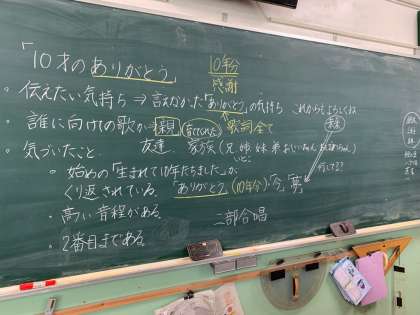 「10才のありがとう」
10年分
感謝
・伝えたい気持ち ⇒ 言えなかった「ありがとう」の気持ち これからもよろしくね
・誰に向けての歌か 親(育てくれた) 歌詞全て
未来
友達、家族(兄姉妹弟おじいちゃんおばあちゃん)
いとこ
・気づいたこと
・始めの「生まれて10年たちました」が
くり返されている。「ありがとう(10年分)・今、夢」
・高い音程がある。
二部合唱
・2番まである。